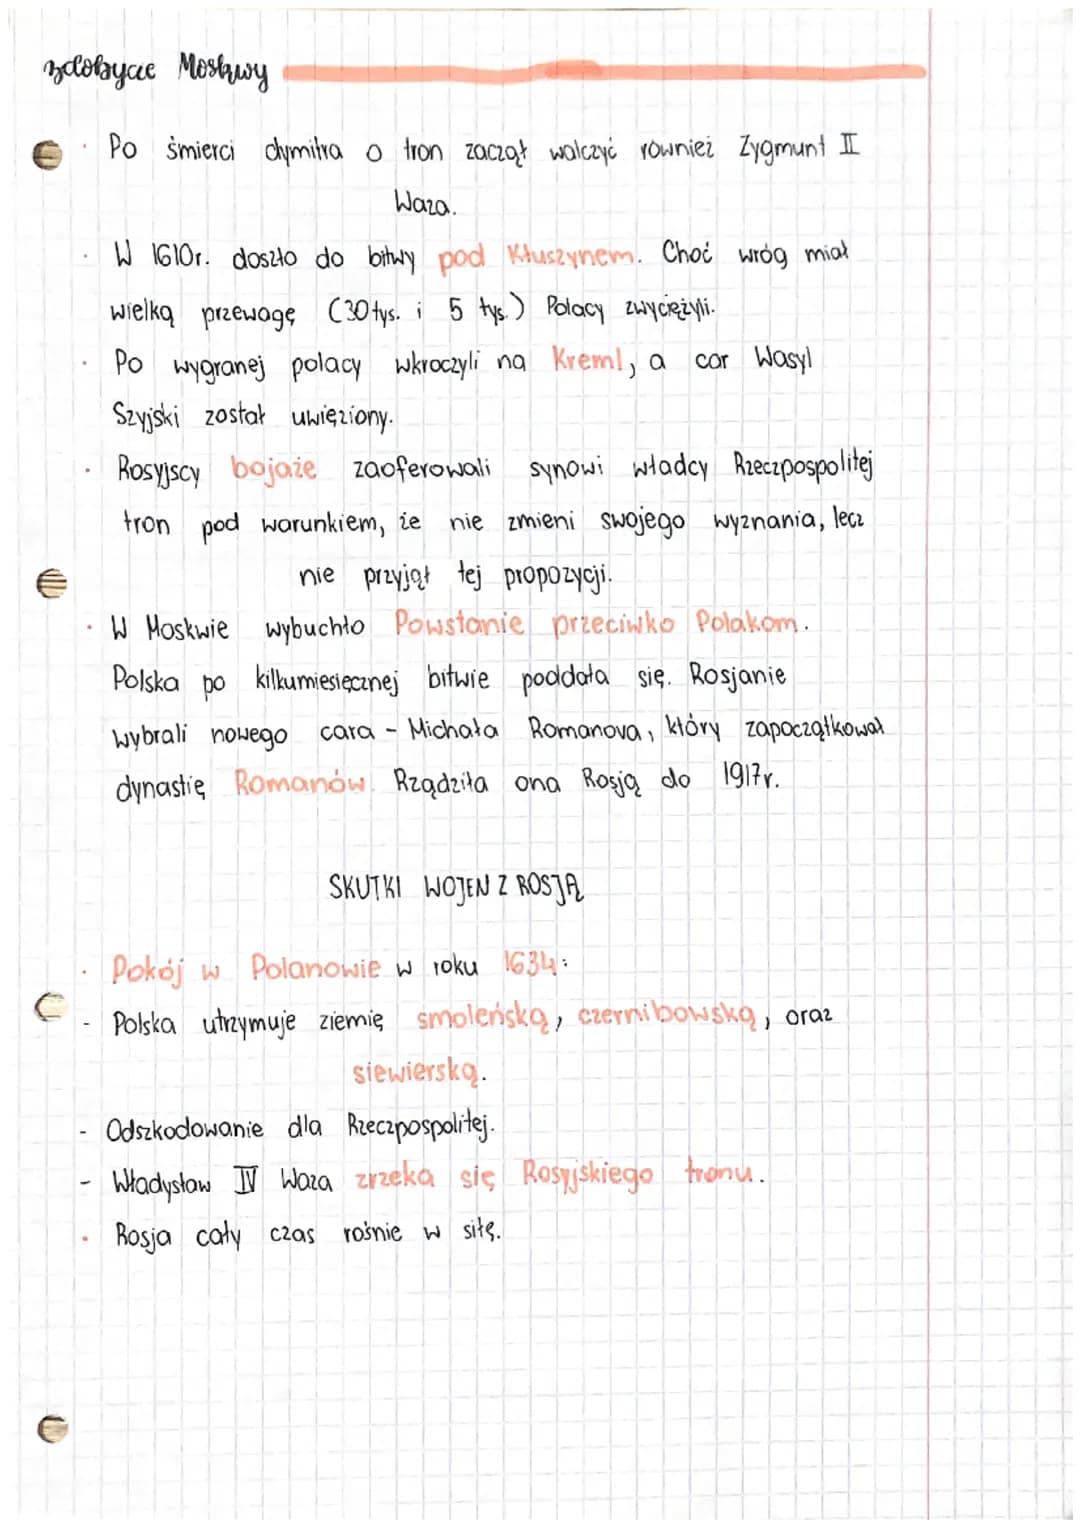 zdobycie Moskwy
Po śmierci dymitra o tron zaczął walczyć również Zygmunt II
Waza.
W 1610r. doszło do bitwy pod Kłuszynem. Choć wróg miał
wielką przewagę (30 tys. i 5 tys.) Polacy zwyciężyli.
Po wygranej polacy wkroczyli na Kreml, a car Wasyl
Szyjski został uwięziony.
Rosyjscy bojaże zaoferowali synowi władcy Rzeczpospolitej
tron pod warunkiem, że nie zmieni swojego wyznania, lecz
nie przyjął tej propozycji.
W Moskwie wybuchło Powstanie przeciwko Polakom.
Polska po kilkumiesięcznej bitwie poddała się. Rosjanie
wybrali nowego cara - Michała Romanova, który zapoczątkował
dynastię Romanów. Rządziła ona Rosją do 1917r.
SKUTKI WOJEN Z ROSJĄ
Pokój w Polanowie w roku 1634:
- Polska utrzymuje ziemię smoleńską, czernibowską, oraz
siewierską.
- Odszkodowanie dla Rzeczpospolitej.
- Władysław IV Waza zrzeka się Rosyjskiego tronu.
Rosja cały czas rośnie w siłę.